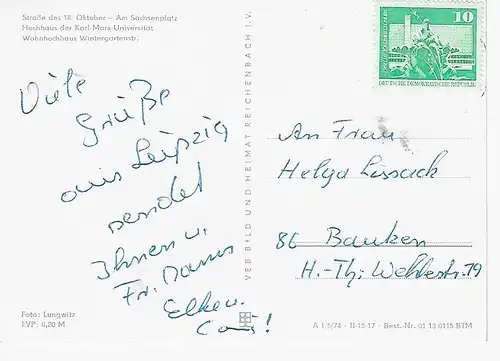 Straße des 18. Oktober – Am Sachsenplatz
Hochhaus der Karl-Marx-Universität
Wohnhochhaus Wintergartenstr.
Viele
Grüße
aus Leipzig
sendet
Ihnen u.
Fr.
VEB BILD UND HEIMAT REICHENBACH I. V.
10
DEUTSCHE DEMOKRATISCHE REPUBLIK
An Frau
Helga Lissack
86 Bautzen
H.-Th.
Foto: Lungwitz
EVP: 0,20 M
A 1/5/74 – II-15-17 – Best.-Nr. 01 13 0115 BTM